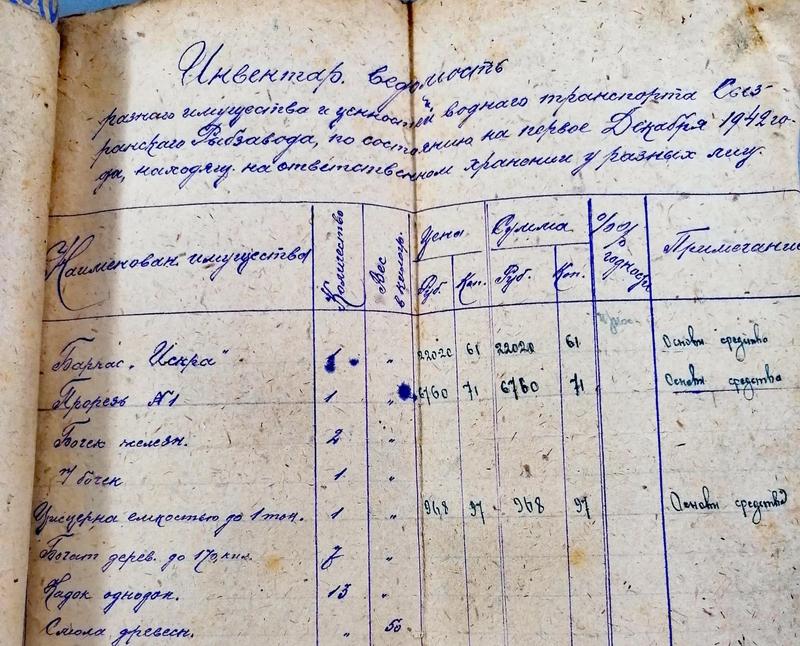 Инвентар. ведомость
разнаго имущества и ценностей воднаго транспорта Сыз-
ранскаго Рыбзавода, по состоянию на первое Декабря 1942 го-
да, находящ. на ответственном хранении у разных лиц.
Наименован. имущества Количество Вес в килогр. Цена Сумма % % годности Примечание
Руб. Коп. Руб. Коп.
Баркас „Искра" 1 „ 22020 61 22020 61 Основн средство
Прорезь №1 1 „ 6760 71 6760 71 Основн средства
Бочек железн. 2 „
1 „
Цистерна емкостью до 1 тон. 1 „ 968 97 968 97 Основн средство
дерев. до 7 „
Кадок однодон. 13 „
Смола древесн. „ 50